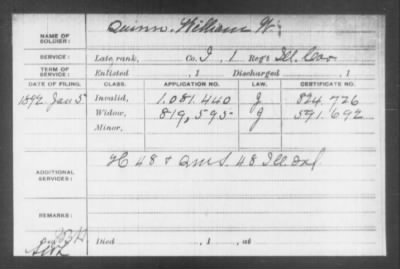 NAME OF SOLDIER: Quinn, William W.
SERVICE: Late rank, Co. I, 1 Reg't Ill. Cav
TERM OF SERVICE: Enlisted , 1 Discharged , 1
DATE OF FILING. CLASS. APPLICATION NO. LAW. CERTIFICATE NO.
1892 Jan 5 Invalid, 1.081.440 J 824.726
Widow, 819,595 J 591.692
Minor,
ADDITIONAL SERVICES: H 48 & QMS. 48 Ill. Inf
REMARKS:
Died , 1 , at